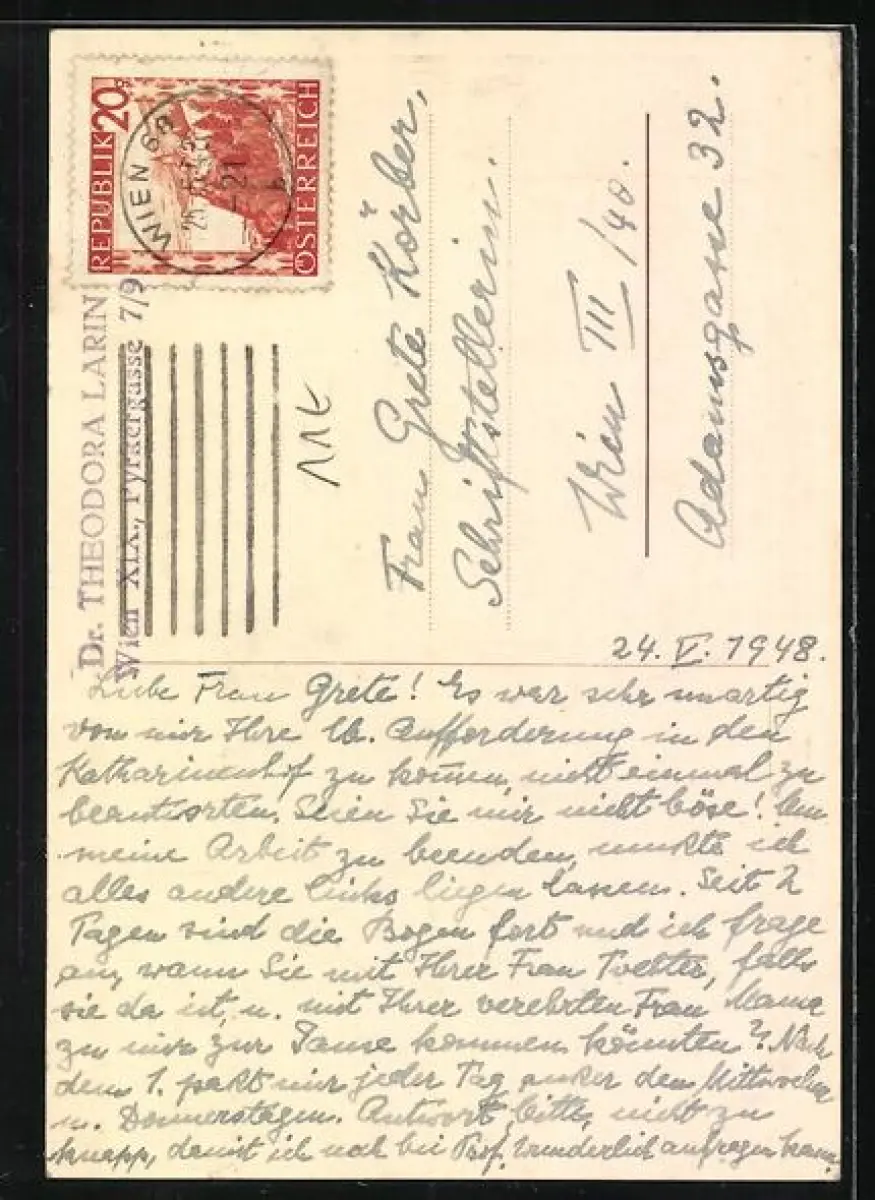 REPUBLIK 20g
ÖSTERREICH
WIEN 68
-21
b
Dr. THEODORA LARIN
Wien XIX., Pyrkergasse 7/9
Frau Grete Körber,
Schriftstellerin.
Wien III/40.
Adamsgasse 32.
24. V. 1948.
Liebe Frau Grete! Es war sehr unartig
von mir Ihre lb. Aufforderung in den
Katharinenhof zu kommen, nicht einmal zu
beantworten. Seien Sie mir nicht böse! Um
meine Arbeit zu beenden, mußte ich
alles andere links liegen lassen. Seit 2
Tagen sind die Bogen fort und ich frage
an, wann Sie mit Ihrer Frau Tochter, falls
sie da ist, u. mit Ihrer verehrten Frau Mama
zu mir zur Jause kommen könnten? Nach
dem 1. paßt mir jeder Tag außer den Mittwochen
u. Donnerstagen. Antwort, bitte, nicht zu
knapp, damit ich noch bei Prof. Wunderlich anfragen kann.